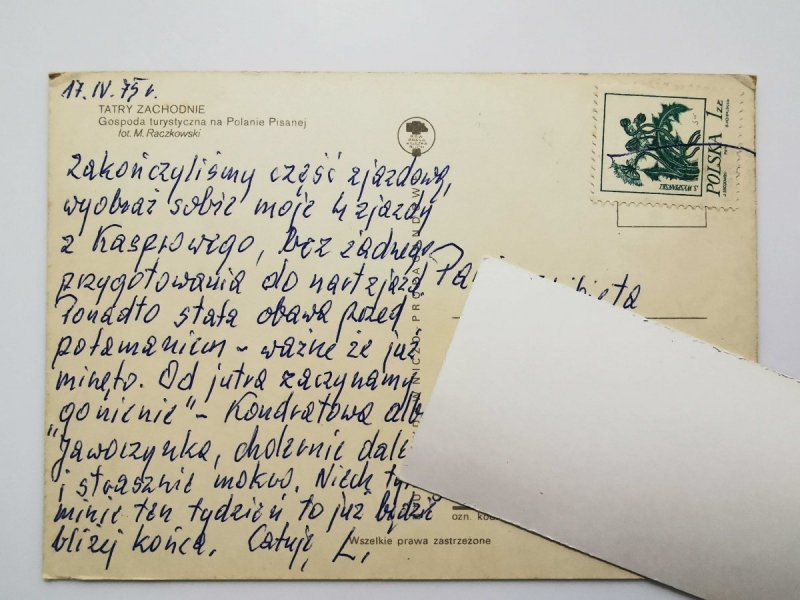 17.IV.75r.
TATRY ZACHODNIE
Gospoda turystyczna na Polanie Pisanej
fot. M. Raczkowski
Zakończyliśmy część zjazdową,
wyobraź sobie moje 4 zjazdy
z Kasprowego, bez żadnego
przygotowania do nart zjazd
Ponadto stała obawa przed
połamaniem - ważne że już
minęło. Od jutra zaczynamy
gonienie" - Kondratowa albo
"Jaworzynka, cholernie dale
i strasznie mokro. Niech ty
minie ten tydzień to już będzie
bliżej końca. Całuję, L.
POLSKA 1 ZŁ
S. WYSPIAŃSKI
ozn. kod
Wszelkie prawa zastrzeżone